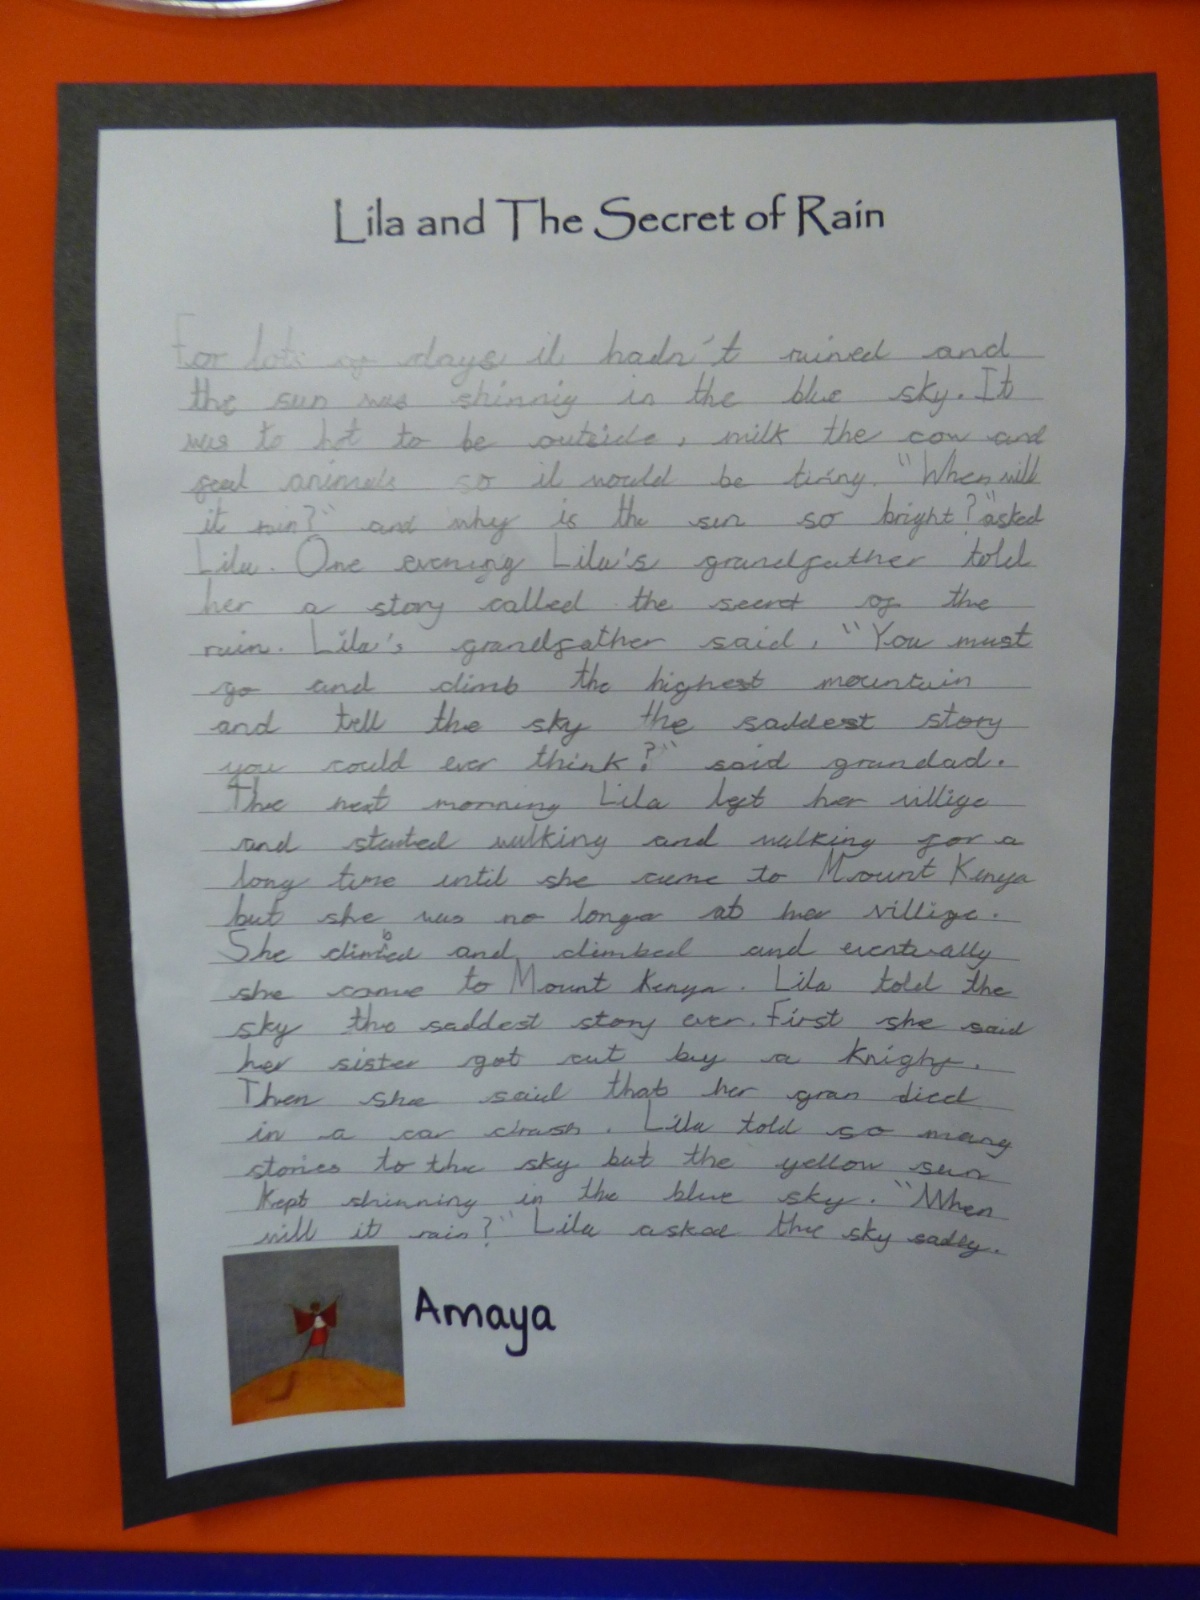 Lila and The Secret of Rain
For lots of days it hadn't rained and
the sun was shinnig in the blue sky. It
was to hot to be outside, milk the cow and
feed animals so it would be tiring. "When will
it rain?" and why is the sun so bright?" asked
Lila. One evening Lila's grandfather told
her a story called the secret of the
rain. Lila's grandfather said, "You must
go and climb the highest mountain
and tell the sky the saddest story
you could ever think?" said grandad.
The next morning Lila left her villige
and started walking and walking for a
long time until she came to Mount Kenya
but she was no longer at her villige.
She climbed and climbed and eventually
she came to Mount Kenya. Lila told the
sky the saddest story ever. First she said
her sister got cut buy a knight.
Then she said that her gran died
in a car crash. Lila told so many
stories to the sky but the yellow sun
kept shinning in the blue sky. "When
will it rain?" Lila asked the sky sadly.
Amaya